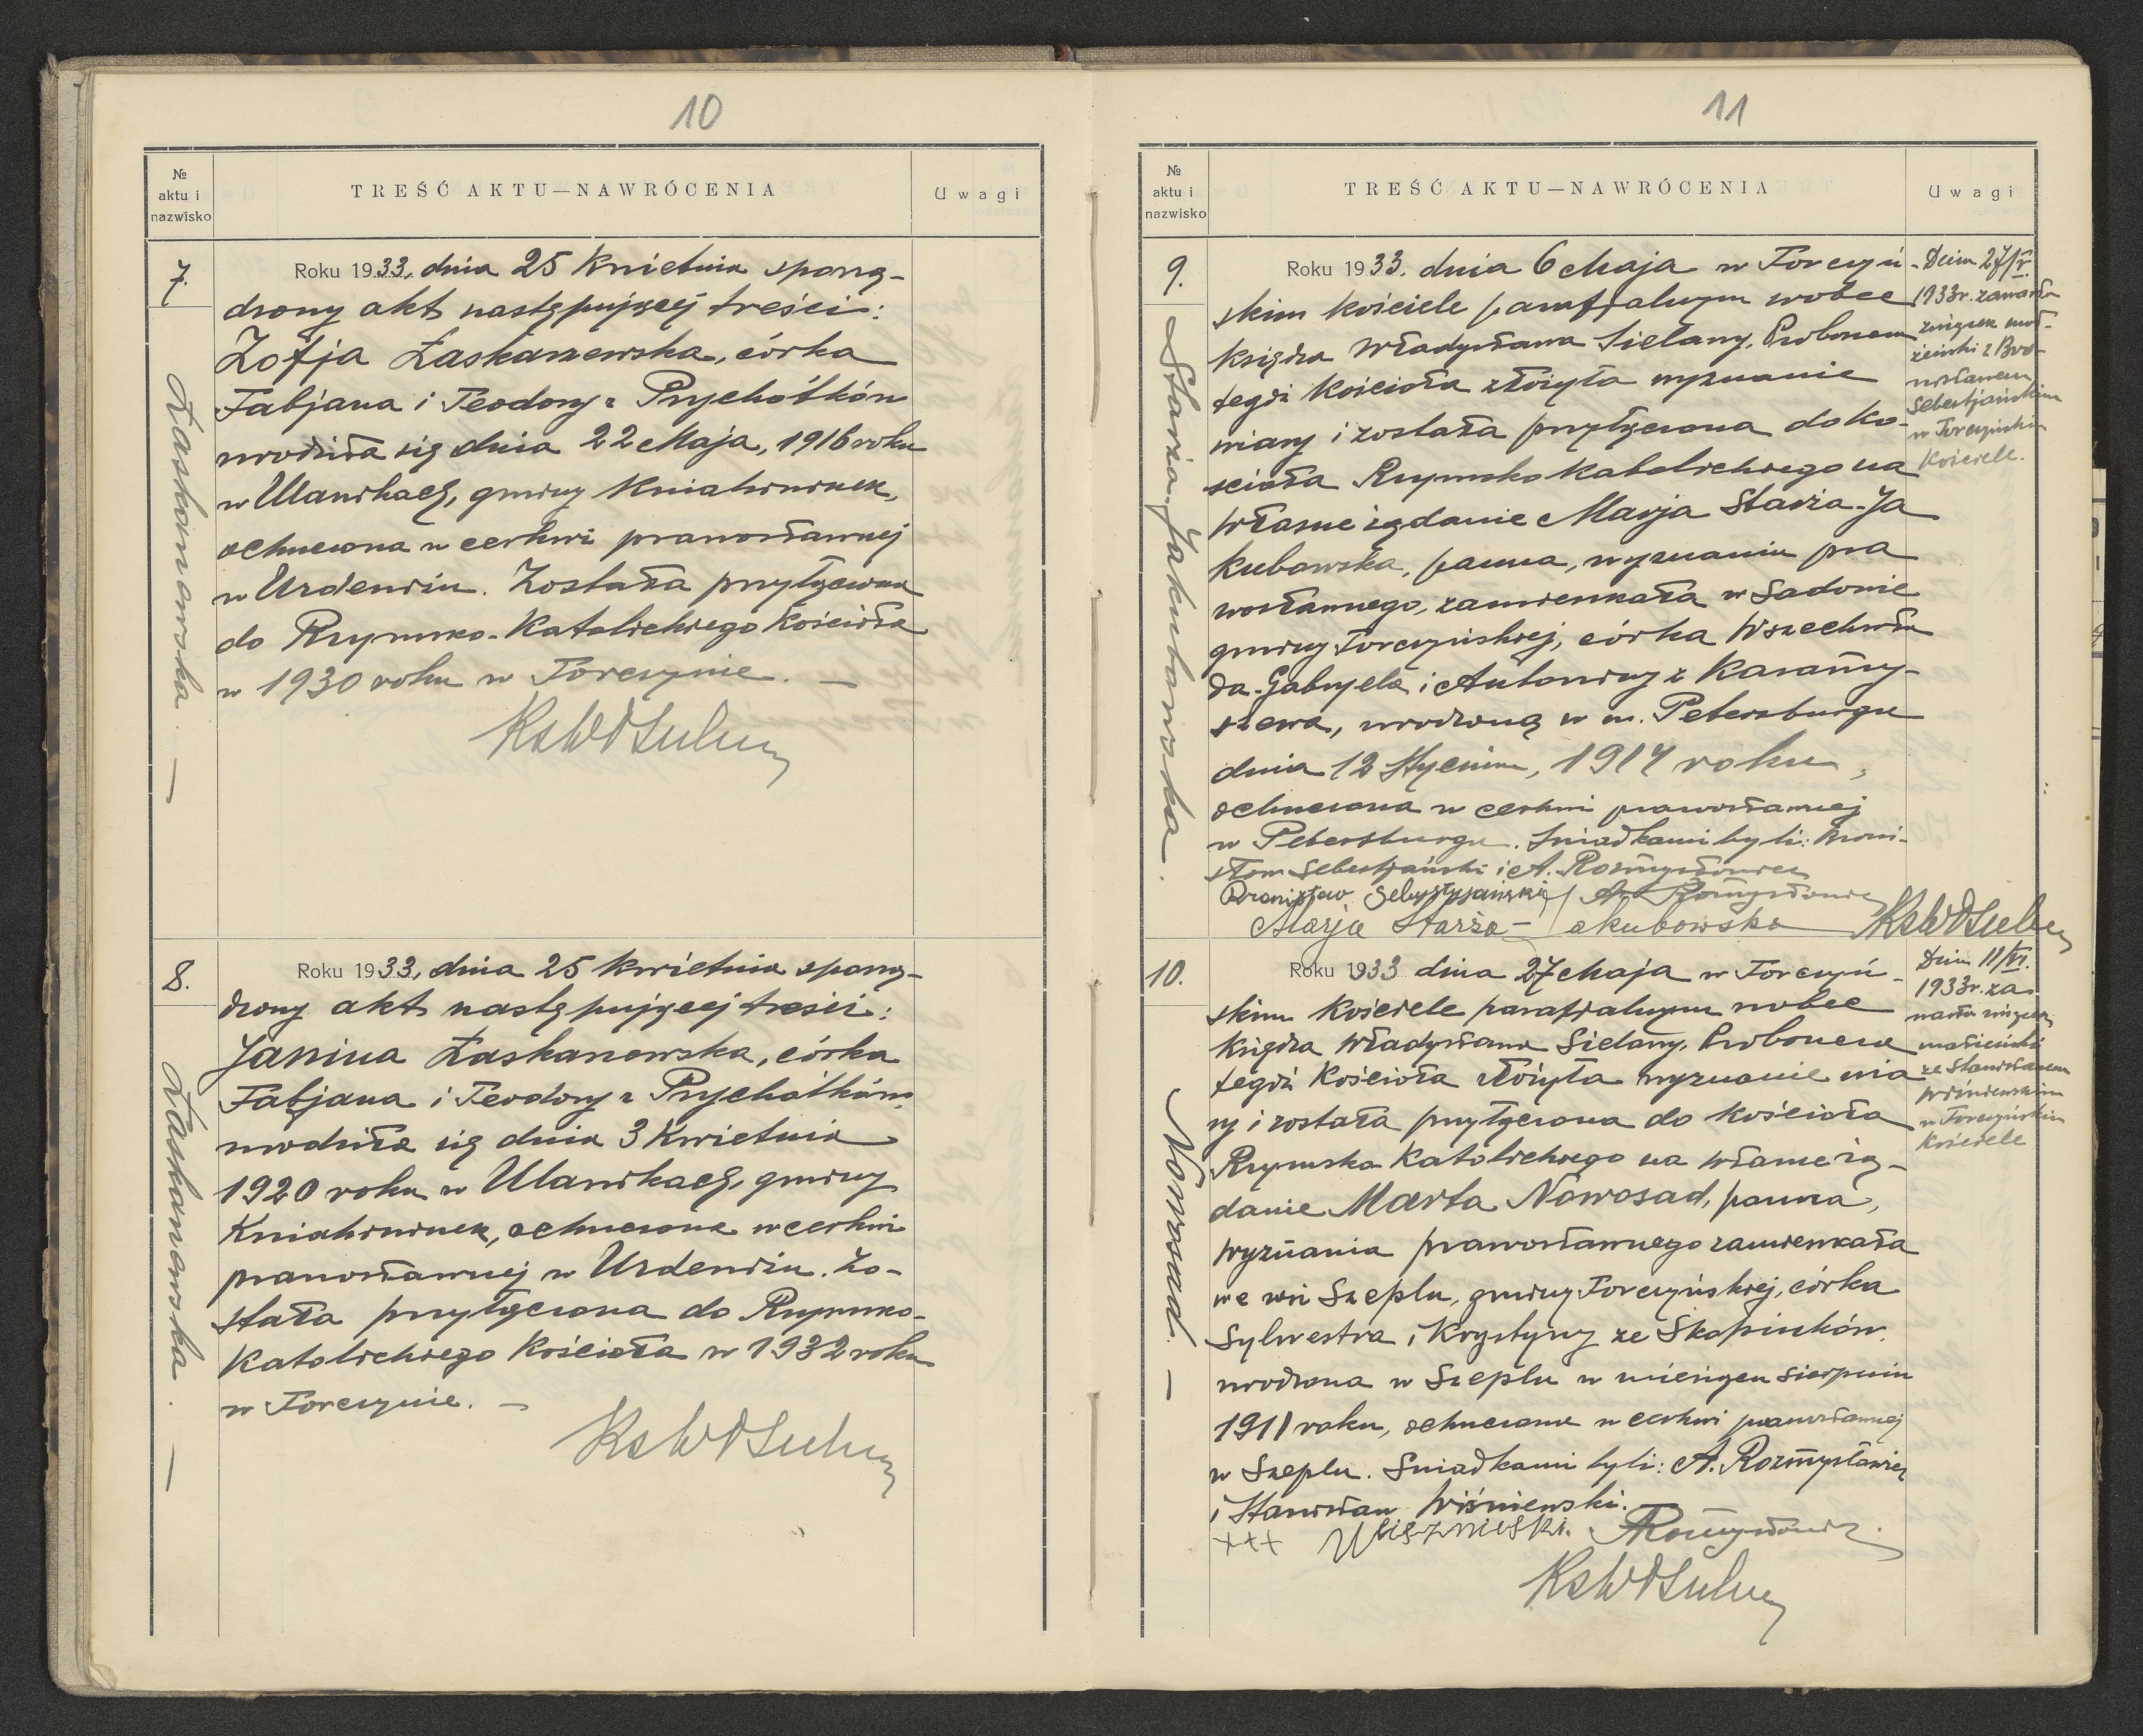 10
№ aktu i nazwisko
TREŚĆ AKTU—NAWRÓCENIA
Uwagi
7.
Łaskanowska. —
Roku 1933, dnia 25 Kwietnia sporzą-
dzony akt następującej treści:
Zofja Łaskanowska, córka
Fabjana i Teodory z Prychódków
urodziła się dnia 22 Maja, 1916 roku
w Ulanikach, gminy Kniahininek,
ochrzczona w cerkwi prawosławnej
w . Została przyłączona
do Rzymsko-Katolickiego Kościoła
w 1930 roku w Torczynie. —
8.
Łaskanowska. —
Roku 1933, dnia 25 Kwietnia sporzą-
dzony akt następującej treści:
Janina Łaskanowska, córka
Fabjana i Teodory z Prychódków,
urodziła się dnia 3 Kwietnia
1920 roku w Ulanikach, gminy
Kniahininek, ochrzczona w cerkwi
prawosławnej w . Zo-
stała przyłączona do Rzymsko-
Katolickiego Kościoła w 1932 roku
w Torczynie. —
11
№ aktu i nazwisko
TREŚĆ AKTU—NAWRÓCENIA
Uwagi
9.
Starża-Jakubowska.
Roku 1933. dnia 6 Maja w Torczyń-
skim Kościele parafjalnym wobec
Księdza Władysława Sielawy, Proboszcza
tegoż Kościoła złożyła wyznanie
wiary i została przyłączona do Ko-
ścioła Rzymsko Katolickiego na
własne żądanie Marja Starża-Ja
kubowska, panna, wyznania pra
wosławnego, zamieszkała w Sadowie
gminy Torczyńskiej, córka Wszechwło
da-Gabryela i Antoniny z Karamy-
szewa, urodzoną w m. Petersburgu
dnia 12 Stycznia, 1914 roku,
ochrzczona w cerkwi prawosławnej
w Petersburgu. Świadkami byli: Broni-
sław Sebestjański i A. Rozmysłowicz
Bronisław
Marja Starża-Jakubowska
Dnia 27/V
1933r. zawarła
związek mał-
żeński z Bro-
nisławem
Sebestjańskim
w Torczyńskim
Kościele.
10.
Nowosad. —
Roku 1933 dnia 27 Maja w Torczyń-
skim Kościele parafjalnym wobec
Księdza Władysława Sielawy, Proboszcza
tegoż Kościoła złożyła wyznanie wia
ry i została przyłączona do Kościoła
Rzymsko Katolickiego na własne żą-
danie Marta Nowosad, panna,
wyznania prawosławnego zamieszkała
we wsi Szeplu, gminy Torczyńskiej, córka
Sylwestra i Krystyny ze Skopiuków.
urodzona w Szeplu w miesiącu Sierpniu
1911 roku, ochrzczona w cerkwi prawosławnej
w Szeplu. Świadkami byli: A. Rozmysłowicz
i Stanisław Wiśniewski.
+++
Dnia 11/VI.
1933r. za-
warła związek
małżeński
ze Stanisławem
Wiśniewskim
w Torczyńskim
Kościele